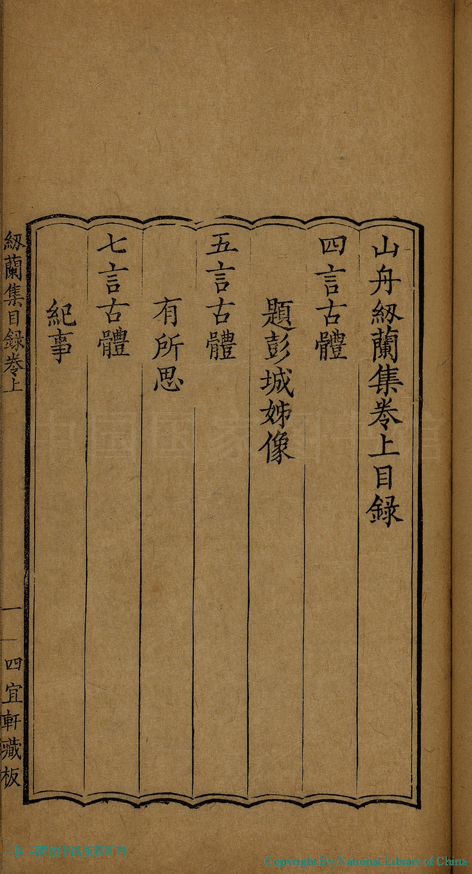 山舟紉蘭集卷上目録
四言古體
題彭城姊像
五言古體
有所思
七言古體
紀事
紉蘭集目録卷上
一
四宜軒藏板
中国国家图书馆
Copyright by National Library of China